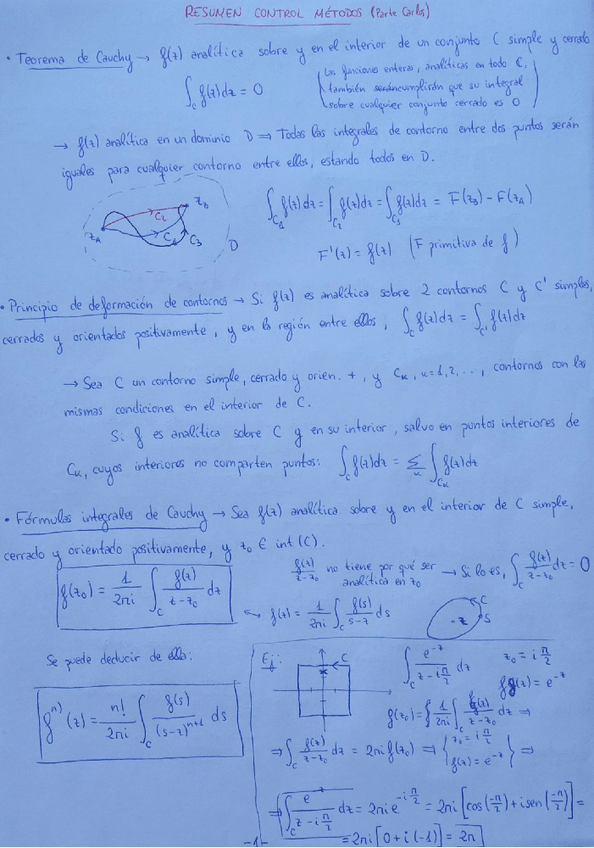 RESUMEN CONTROL MÉTODOS (Parte Carlos)
• Teorema de Cauchy → f(z) analítica sobre y en el interior de un conjunto C simple y cerrado
∫_C f(z)dz = 0
(Las funciones enteras, analíticas en todo ℂ,
también cumplirán que su integral
sobre cualquier conjunto cerrado es 0)
→ f(z) analítica en un dominio D ⇒ Todas las integrales de contorno entre dos puntos serán
iguales para cualquier contorno entre ellos, estando todos en D.
z_A z_B C_2 C_1 C_3 D
∫_{C_1} f(z)dz = ∫_{C_2} f(z)dz = ∫_{C_3} f(z)dz = F(z_B) - F(z_A)
F'(z) = f(z) (F primitiva de f)
• Principio de deformación de contornos → Si f(z) es analítica sobre 2 contornos C y C' simples,
cerrados y orientados positivamente, y en la región entre ellos, ∫_C f(z)dz = ∫_{C'} f(z)dz
→ Sea C un contorno simple, cerrado y orien. +, y C_k, k=1,2,..., contornos con las
mismas condiciones en el interior de C.
Si f es analítica sobre C y en su interior, salvo en puntos interiores de
C_k, cuyos interiores no comparten puntos: ∫_C f(z)dz = Σ_k ∫_{C_k} f(z)dz
• Fórmulas integrales de Cauchy → Sea f(z) analítica sobre y en el interior de C simple,
cerrado y orientado positivamente, y z_0 ∈ int(C).
f(z_0) = 1/2πi ∫_C f(z)/(z-z_0) dz
f(z)/(z-z_0) no tiene por qué ser
analítica en z_0
→ Si lo es, ∫_C f(z)/(z-z_0) dz = 0
↪ f(z) = 1/2πi ∫_C f(s)/(s-z) ds
C z s
Se puede deducir de ella:
f^{n)}(z) = n!/2πi ∫_C f(s)/(s-z)^{n+1} ds
Ej: C
∫_C e^{-z}/(z-iπ/2) dz
z_0 = iπ/2
f(z) = e^{-z}
f(z_0) = 1/2πi ∫_C f(z)/(z-z_0) dz ⇒
⇒ ∫_C f(z)/(z-z_0) dz = 2πi f(z_0) ⇒ {z_0 = iπ/2
f(z) = e^{-z}} ⇒
⇒ ∫_C e^{-z}/(z-iπ/2) dz = 2πi e^{-iπ/2} = 2πi [cos(-π/2) + i sen(-π/2)] =
= 2πi [0 + i(-1)] = 2π
-1-